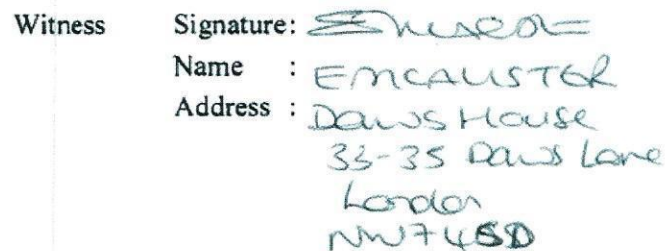 Witness Signature:
Name : EMCALISTER
Address : DAWS HOUSE
33-35 Daws Lane
London
NW7 4SD